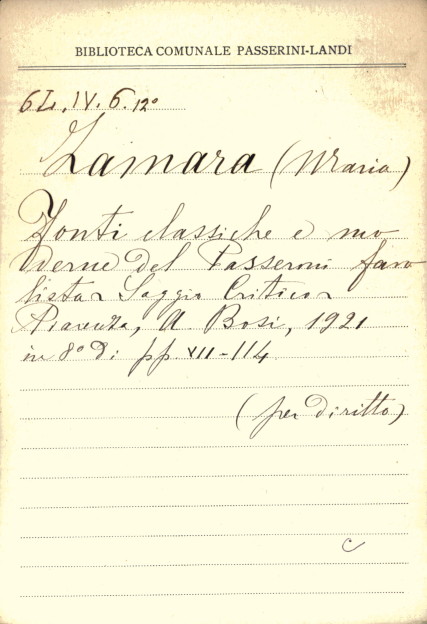 BIBLIOTECA COMUNALE PASSERINI-LANDI
6L. IV. 6. 12º
Zamara (Maria)
Fonti classiche e mo
derne del Passeroni favo
lista Saggio Critico
Piacenza, A. Bosi, 1921
in 8º di pp XII-114
(per diritto)
c